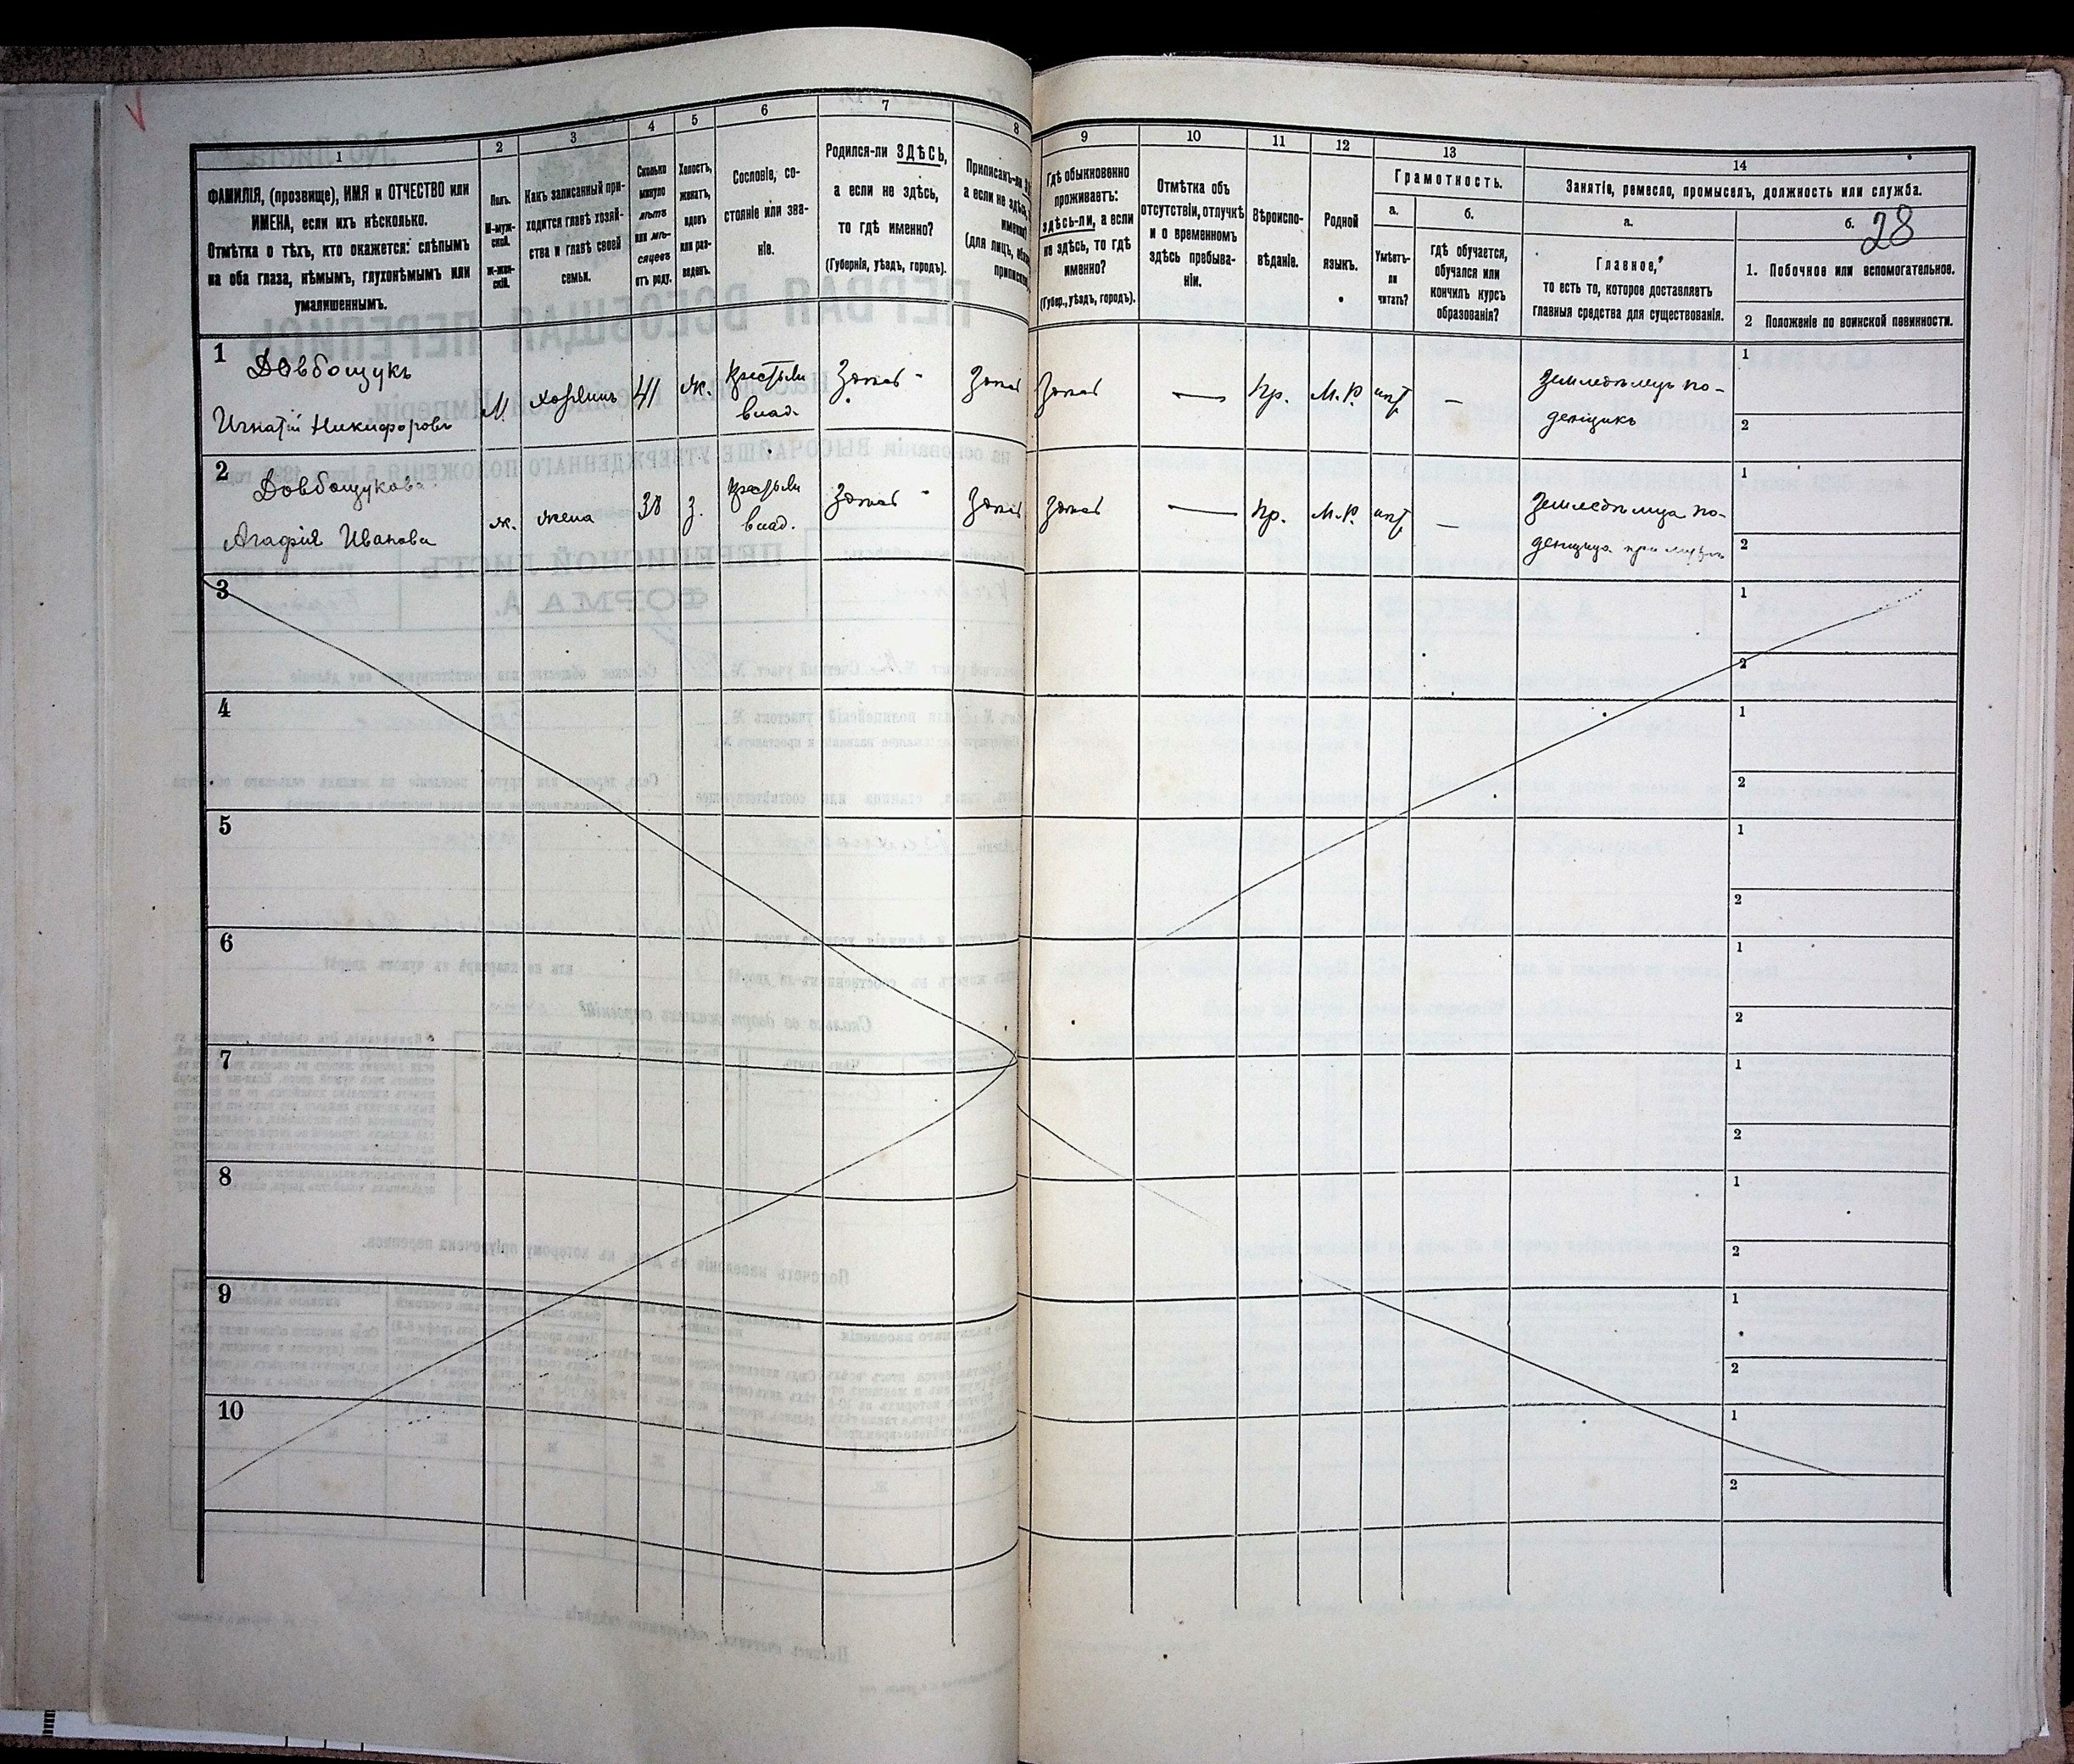 28
1 2 3 4 5 6 7 8 9 10 11 12 13 14
ФАМИЛІЯ, (прозвище), ИМЯ и ОТЧЕСТВО или
ИМЕНА, если ихъ нѣсколько.
Отмѣтка о тѣхъ, кто окажется: слѣпымъ
на оба глаза, нѣмымъ, глухонѣмымъ или
умалишеннымъ.
Полъ.
М-муж-
ской.
Ж-жен-
скій.
Какъ записанный при-
ходится главѣ хозяй-
ства и главѣ своей
семьи.
Сколько
минуло
лѣтъ
или мѣ-
сяцевъ
отъ роду.
Холостъ,
женатъ,
вдовъ
или раз-
веденъ.
Сословіе, со-
стояніе или зва-
ніе.
Родился-ли ЗДѢСЬ,
а если не здѣсь,
то гдѣ именно?
(Губернія, уѣздъ, городъ).
Приписанъ-ли
а если не здѣсь,
(для лицъ,
Гдѣ обыкновенно
проживаетъ:
здѣсь-ли, а если
не здѣсь, то гдѣ
именно?
(Губер., уѣздъ, городъ).
Отмѣтка объ
отсутствіи, отлучкѣ
и о временномъ
здѣсь пребыва-
ніи.
Вѣроиспо-
вѣданіе.
Родной
языкъ.
Грамотность.
а.
Умѣетъ-
ли
читать?
б.
гдѣ обучается,
обучался или
кончилъ курсъ
образованія?
Занятіе, ремесло, промыселъ, должность или служба.
а.
Главное,
то есть то, которое доставляетъ
главныя средства для существованія.
б.
1. Побочное или вспомогательное.
2 Положеніе по воинской повинности.
1 Довбощукъ
Игнатій Никифоровъ М. хозяинъ 41 ж. Крестьян влад. Здѣсь Здѣсь Здѣсь — Пр. М.Р. нѣт — Земледѣлецъ по-
денщикъ
1
2
2 Довбощукова
Агафія Иванова ж. жена 38 з. Крестьян влад. Здѣсь Здѣсь Здѣсь — Пр. М.Р. нѣт — Земледѣлица по-
денщица при мужѣ
1
2
3 1
2
4 1
2
5 1
2
6 1
2
7 1
2
8 1
2
9 1
2
10 1
2